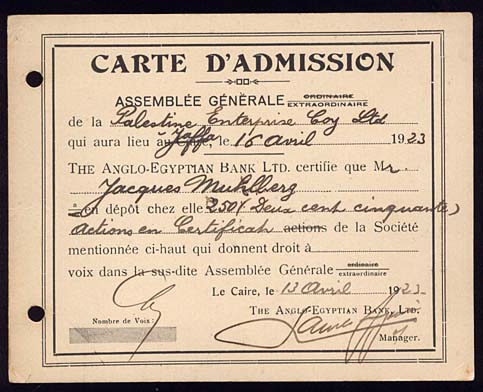 CARTE D'ADMISSION
ASSEMBLÉE GÉNÉRALE ORDINAIRE EXTRAORDINAIRE
de la Palestine Enterprise Coy Ltd
qui aura lieu à Jaffa, le 16 avril 1923
THE ANGLO-EGYPTIAN BANK LTD. certifie que Mr
Jacques Muhlberg
a en dépôt chez elle 250 (Deux cent cinquante)
actions en Certificat actions de la Société
mentionnée ci-haut qui donnent droit à
voix dans la sus-dite Assemblée Générale ordinaire extraordinaire
Le Caire, le 13 avril 1923
Nombre de Voix:
THE ANGLO-EGYPTIAN BANK, LTD.
Manager.